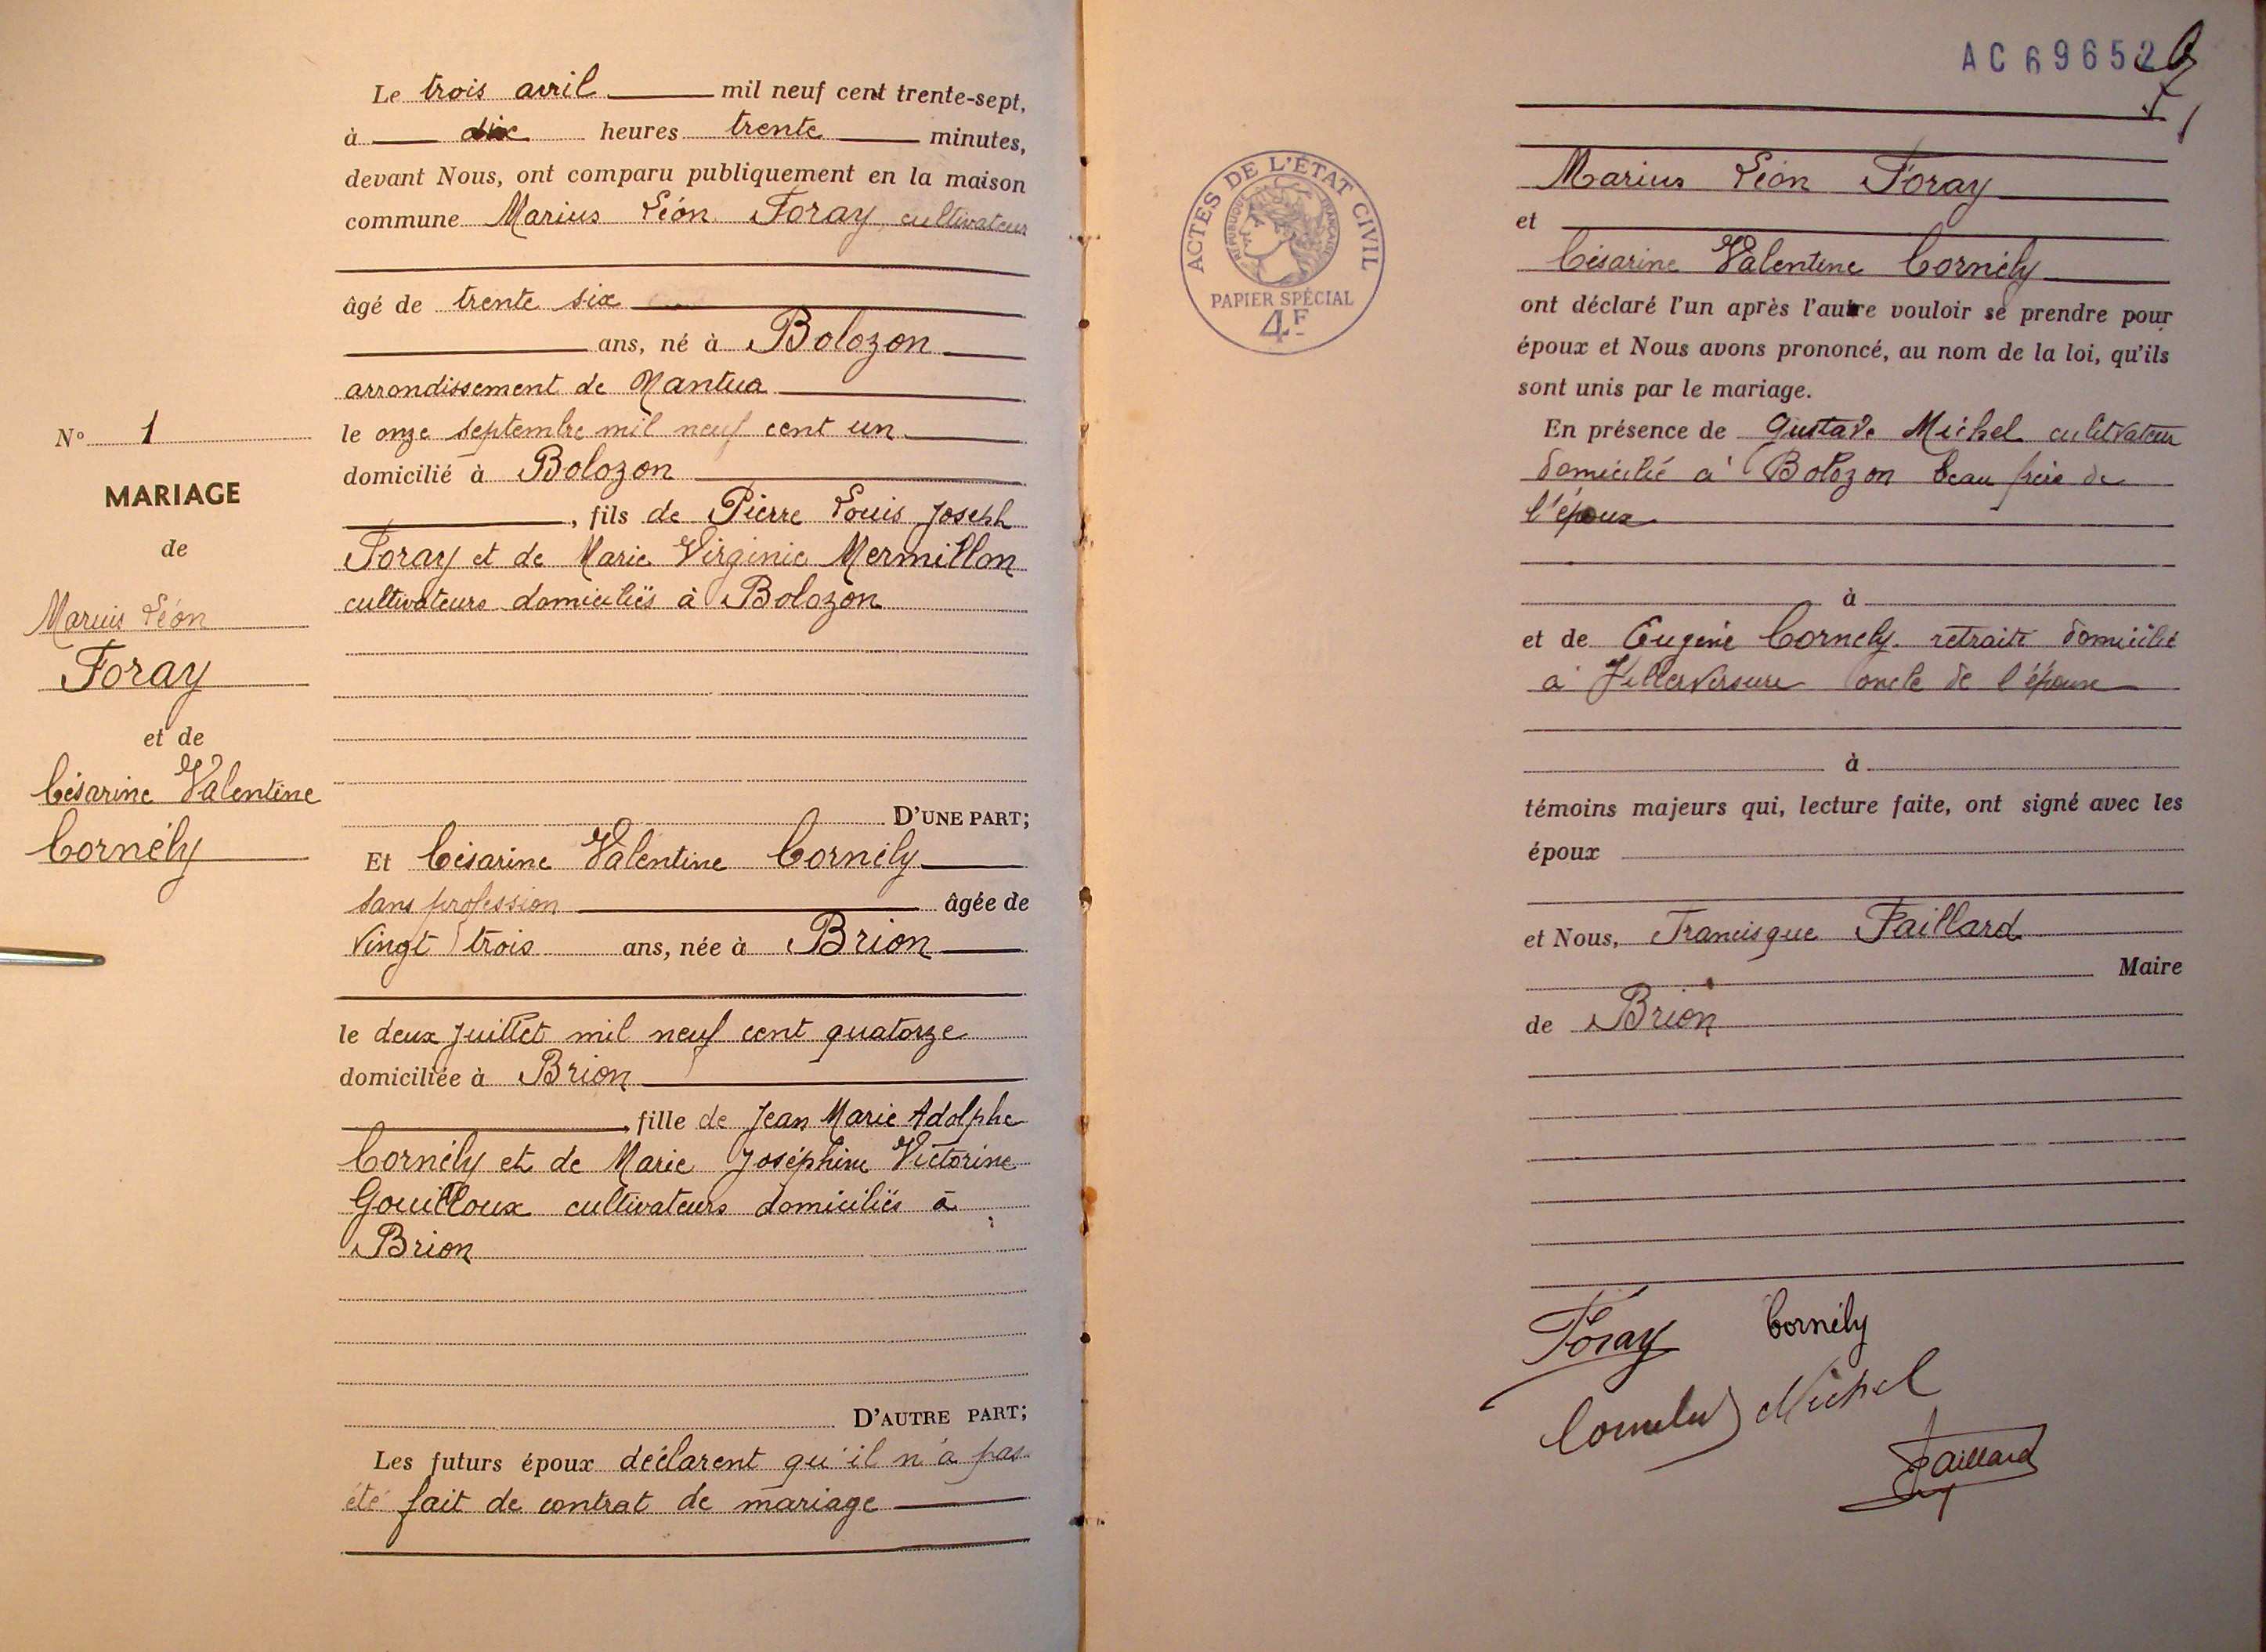 N° 1
MARIAGE
de
Marius Léon
Foray
et de
Césarine Valentine
Cornély
Le trois avril mil neuf cent trente-sept,
à dix heures trente minutes,
devant Nous, ont comparu publiquement en la maison
commune Marius Léon Foray cultivateur
âgé de trente six
ans, né à Bolozon
arrondissement de Nantua
le onze septembre mil neuf cent un
domicilié à Bolozon
, fils de Pierre Louis Joseph
Foray et de Marie Virginie Mermillon
cultivateurs domiciliés à Bolozon
D'UNE PART;
Et Césarine Valentine Cornély
sans profession âgée de
vingt trois ans, née à Brion
le deux juillet mil neuf cent quatorze
domiciliée à Brion
, fille de Jean Marie Adolphe
Cornély et de Marie Joséphine Victorine
Gouilloux cultivateurs domiciliés à
Brion
D'AUTRE PART;
Les futurs époux déclarent qu'il n'a pas
été fait de contrat de mariage
AC 69652
ACTES DE L'ÉTAT CIVIL
RÉPUBLIQUE FRANÇAISE
PAPIER SPÉCIAL
4F
Marius Léon Foray
et
Césarine Valentine Cornély
ont déclaré l'un après l'autre vouloir se prendre pour
époux et Nous avons prononcé, au nom de la loi, qu'ils
sont unis par le mariage.
En présence de Gustave Michel cultivateur
domicilié à Bolozon beau frère de
l'époux
à
et de Eugène Cornely retraité domicilié
à Villereversure oncle de l'épouse
à
témoins majeurs qui, lecture faite, ont signé avec les
époux
et Nous, Francisque Faillard
Maire
de Brion
Foray Cornély
Michel
Faillard